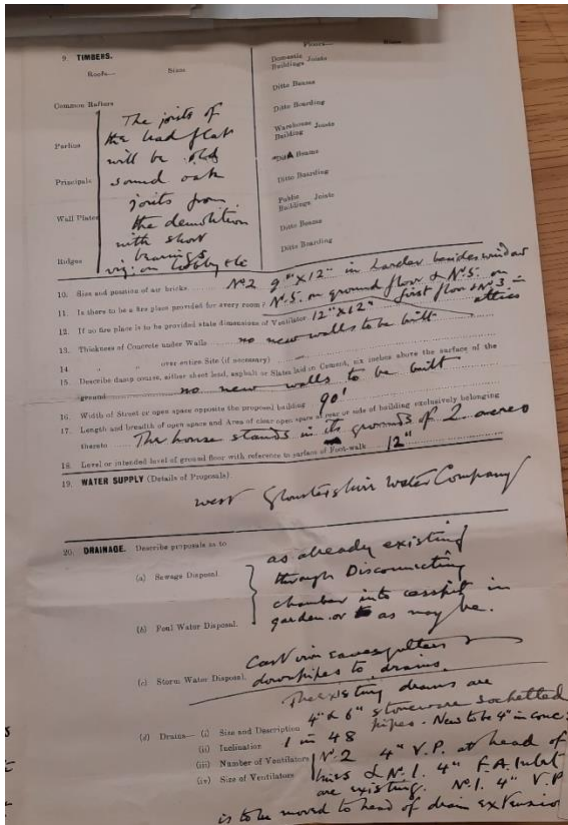 9 TIMBERS.
Roofs— Sizes
Floors— Sizes
Common Rafters
Purlins
Principals
Wall Plates
Ridges
The joists of
the lead flat
will be old
sound oak
joists from
the demolition
with short
bearings
viz: on lobby etc
Domestic Buildings Joists
Ditto Beams
Ditto Boarding
Warehouse Building Joists
Ditto Beams
Ditto Boarding
Public Buildings Joists
Ditto Beams
Ditto Boarding
10. Size and position of air bricks Nº2 9"x12" in Larder besides window
11. Is there to be a fire place provided for every room? Nº.5. on ground floor & Nº.5. on first floor & Nº3 in attics
12. If no fire place is to be provided state dimensions of Ventilator 12"x12"
13. Thickness of Concrete under Walls no new walls to be built
14 " over entire Site (if necessary)
15. Describe damp course, either sheet lead, asphalt or Slates laid on Cement, six inches above the surface of the
ground no new walls to be built
16. Width of Street or open space opposite the proposed building 90'
17. Length and breadth of open space and Area of clear open space at rear or side of building exclusively belonging
thereto The house stands in its grounds of 2 acres
18. Level or intended level of ground floor with reference to surface of Foot-walk 12"
19. WATER SUPPLY (Details of Proposals)
West Gloucestershire Water Company
20. DRAINAGE. Describe proposals as to
(a) Sewage Disposal.
(b) Foul Water Disposal.
as already existing
through Disconnecting
chamber into cesspit in
garden or as may be.
(c) Storm Water Disposal. Cast iron eaves gutters
downpipes to drains.
The existing drains are
(d) Drains— (i) Size and Description 4" & 6" stoneware socketted
pipes. New to be 4" in conc:
(ii) Inclination 1 in 48
(iii) Number of Ventilators Nº.2 4" V.P. at head of
(iv) Size of Ventilators lines & Nº.1. 4" F.A. Inlet
are existing. Nº.1. 4" V.P
is to be moved to head of drain extension